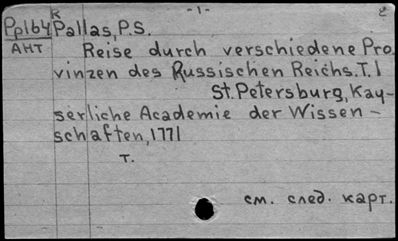 -1-
Pp164 Pallas, P.S.
АНТ Reise durch verschiedene Pro
vinzen des Russischen Reichs. T. 1
St. Petersburg, Kay-
serliche Academie der Wissen-
schaften, 1771
т.
см. след. карт.